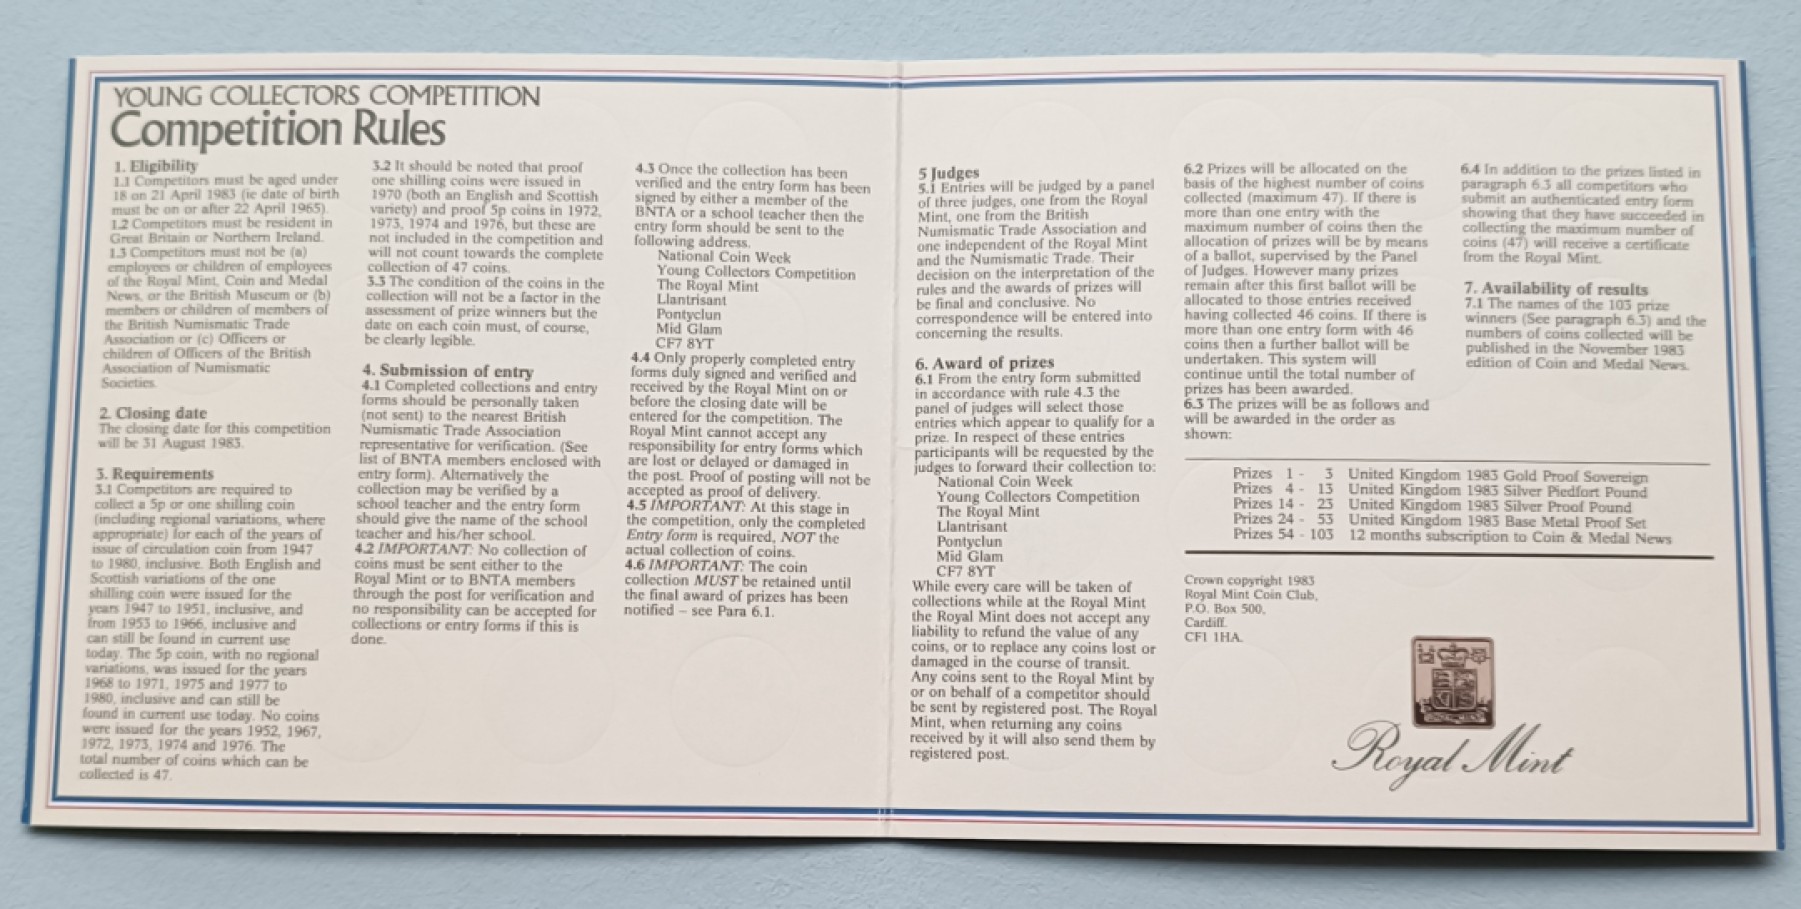 YOUNG COLLECTORS COMPETITION
Competition Rules
1. Eligibility
1.1 Competitors must be aged under
18 on 21 April 1983 (ie date of birth
must be on or after 22 April 1965).
1.2 Competitors must be resident in
Great Britain or Northern Ireland.
1.3 Competitors must not be (a)
employees or children of employees
of the Royal Mint, Coin and Medal
News, or the British Museum or (b)
members or children of members of
the British Numismatic Trade
Association or (c) Officers or
children of Officers of the British
Association of Numismatic
Societies.
2. Closing date
The closing date for this competition
will be 31 August 1983.
3. Requirements
3.1 Competitors are required to
collect a 5p or one shilling coin
(including regional variations, where
appropriate) for each of the years of
issue of circulation coin from 1947
to 1980, inclusive. Both English and
Scottish variations of the one
shilling coin were issued for the
years 1947 to 1951, inclusive, and
from 1953 to 1966, inclusive and
can still be found in current use
today. The 5p coin, with no regional
variations, was issued for the years
1968 to 1971, 1975 and 1977 to
1980, inclusive and can still be
found in current use today. No coins
were issued for the years 1952, 1967,
1972, 1973, 1974 and 1976. The
total number of coins which can be
collected is 47.
3.2 It should be noted that proof
one shilling coins were issued in
1970 (both an English and Scottish
variety) and proof 5p coins in 1972,
1973, 1974 and 1976, but these are
not included in the competition and
will not count towards the complete
collection of 47 coins.
3.3 The condition of the coins in the
collection will not be a factor in the
assessment of prize winners but the
date on each coin must, of course,
be clearly legible.
4. Submission of entry
4.1 Completed collections and entry
forms should be personally taken
(not sent) to the nearest British
Numismatic Trade Association
representative for verification. (See
list of BNTA members enclosed with
entry form). Alternatively the
collection may be verified by a
school teacher and the entry form
should give the name of the school
teacher and his/her school.
4.2 IMPORTANT: No collection of
coins must be sent either to the
Royal Mint or to BNTA members
through the post for verification and
no responsibility can be accepted for
collections or entry forms if this is
done.
4.3 Once the collection has been
verified and the entry form has been
signed by either a member of the
BNTA or a school teacher then the
entry form should be sent to the
following address.
National Coin Week
Young Collectors Competition
The Royal Mint
Llantrisant
Pontyclun
Mid Glam
CF7 8YT
4.4 Only properly completed entry
forms duly signed and verified and
received by the Royal Mint on or
before the closing date will be
entered for the competition. The
Royal Mint cannot accept any
responsibility for entry forms which
are lost or delayed or damaged in
the post. Proof of posting will not be
accepted as proof of delivery.
4.5 IMPORTANT: At this stage in
the competition, only the completed
Entry form is required, NOT the
actual collection of coins.
4.6 IMPORTANT: The coin
collection MUST be retained until
the final award of prizes has been
notified – see Para 6.1.
5 Judges
5.1 Entries will be judged by a panel
of three judges, one from the Royal
Mint, one from the British
Numismatic Trade Association and
one independent of the Royal Mint
and the Numismatic Trade. Their
decision on the interpretation of the
rules and the awards of prizes will
be final and conclusive. No
correspondence will be entered into
concerning the results.
6. Award of prizes
6.1 From the entry form submitted
in accordance with rule 4.3 the
panel of judges will select those
entries which appear to qualify for a
prize. In respect of these entries
participants will be requested by the
judges to forward their collection to:
National Coin Week
Young Collectors Competition
The Royal Mint
Llantrisant
Pontyclun
Mid Glam
CF7 8YT
While every care will be taken of
collections while at the Royal Mint
the Royal Mint does not accept any
liability to refund the value of any
coins, or to replace any coins lost or
damaged in the course of transit.
Any coins sent to the Royal Mint by
or on behalf of a competitor should
be sent by registered post. The Royal
Mint, when returning any coins
received by it will also send them by
registered post.
6.2 Prizes will be allocated on the
basis of the highest number of coins
collected (maximum 47). If there is
more than one entry with the
maximum number of coins then the
allocation of prizes will be by means
of a ballot, supervised by the Panel
of Judges. However many prizes
remain after this first ballot will be
allocated to those entries received
having collected 46 coins. If there is
more than one entry form with 46
coins then a further ballot will be
undertaken. This system will
continue until the total number of
prizes has been awarded.
6.3 The prizes will be as follows and
will be awarded in the order as
shown:
Prizes 1 - 3 United Kingdom 1983 Gold Proof Sovereign
Prizes 4 - 13 United Kingdom 1983 Silver Piedfort Pound
Prizes 14 - 23 United Kingdom 1983 Silver Proof Pound
Prizes 24 - 53 United Kingdom 1983 Base Metal Proof Set
Prizes 54 - 103 12 months subscription to Coin & Medal News
6.4 In addition to the prizes listed in
paragraph 6.3 all competitors who
submit an authenticated entry form
showing that they have succeeded in
collecting the maximum number of
coins (47) will receive a certificate
from the Royal Mint.
7. Availability of results
7.1 The names of the 103 prize
winners (See paragraph 6.3) and the
numbers of coins collected will be
published in the November 1983
edition of Coin and Medal News.
Crown copyright 1983
Royal Mint Coin Club,
P.O. Box 500,
Cardiff.
CF1 1HA.
Royal Mint